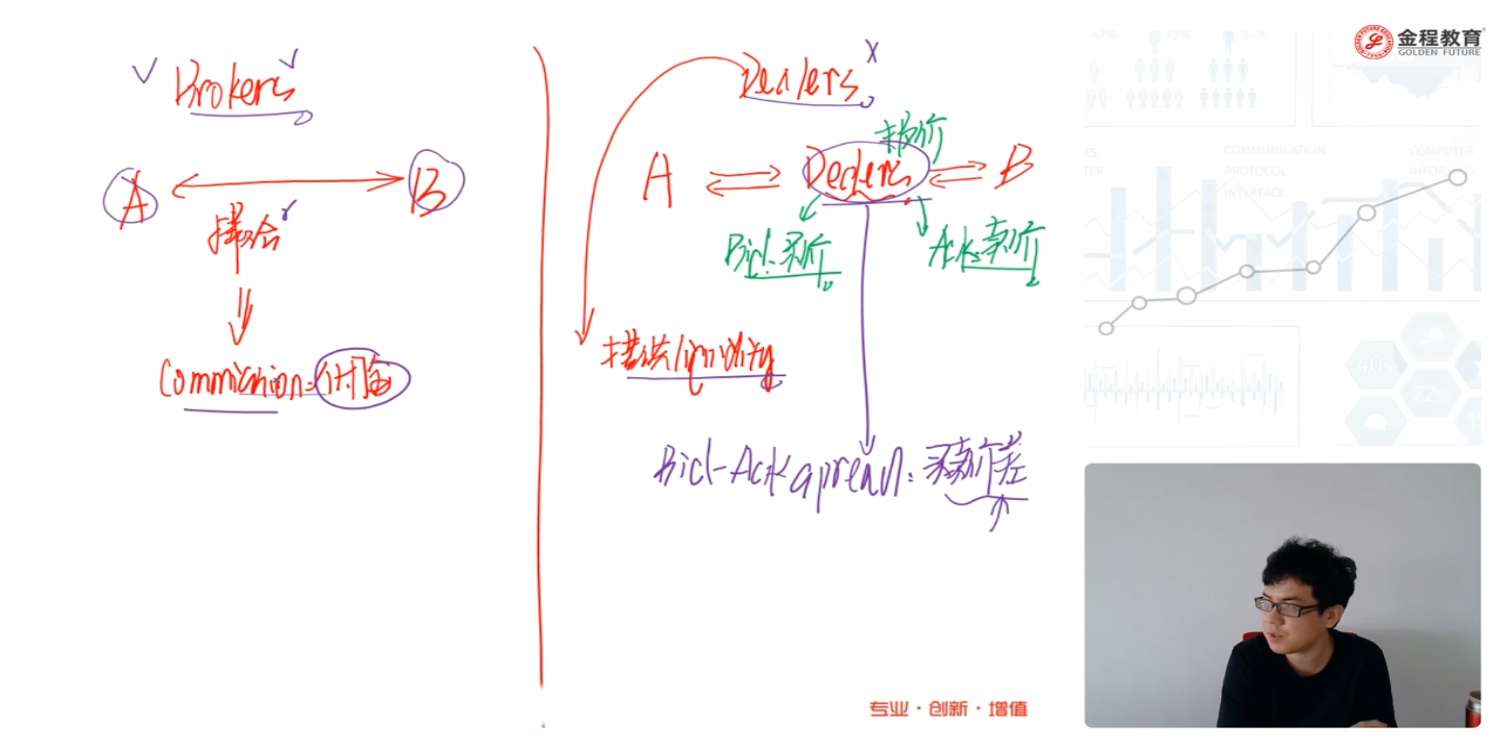 Brokers
A
B
撮合
Commission=佣金
Dealers
报价
A
Dealers
B
Bid:买价
Ask:卖价
提供liquidity
Bid-Ask spread:买卖价差
金程教育
GOLDEN FUTURE
COMMUNICATION
PROTOCOL
INTERFACE
专业·创新·增值